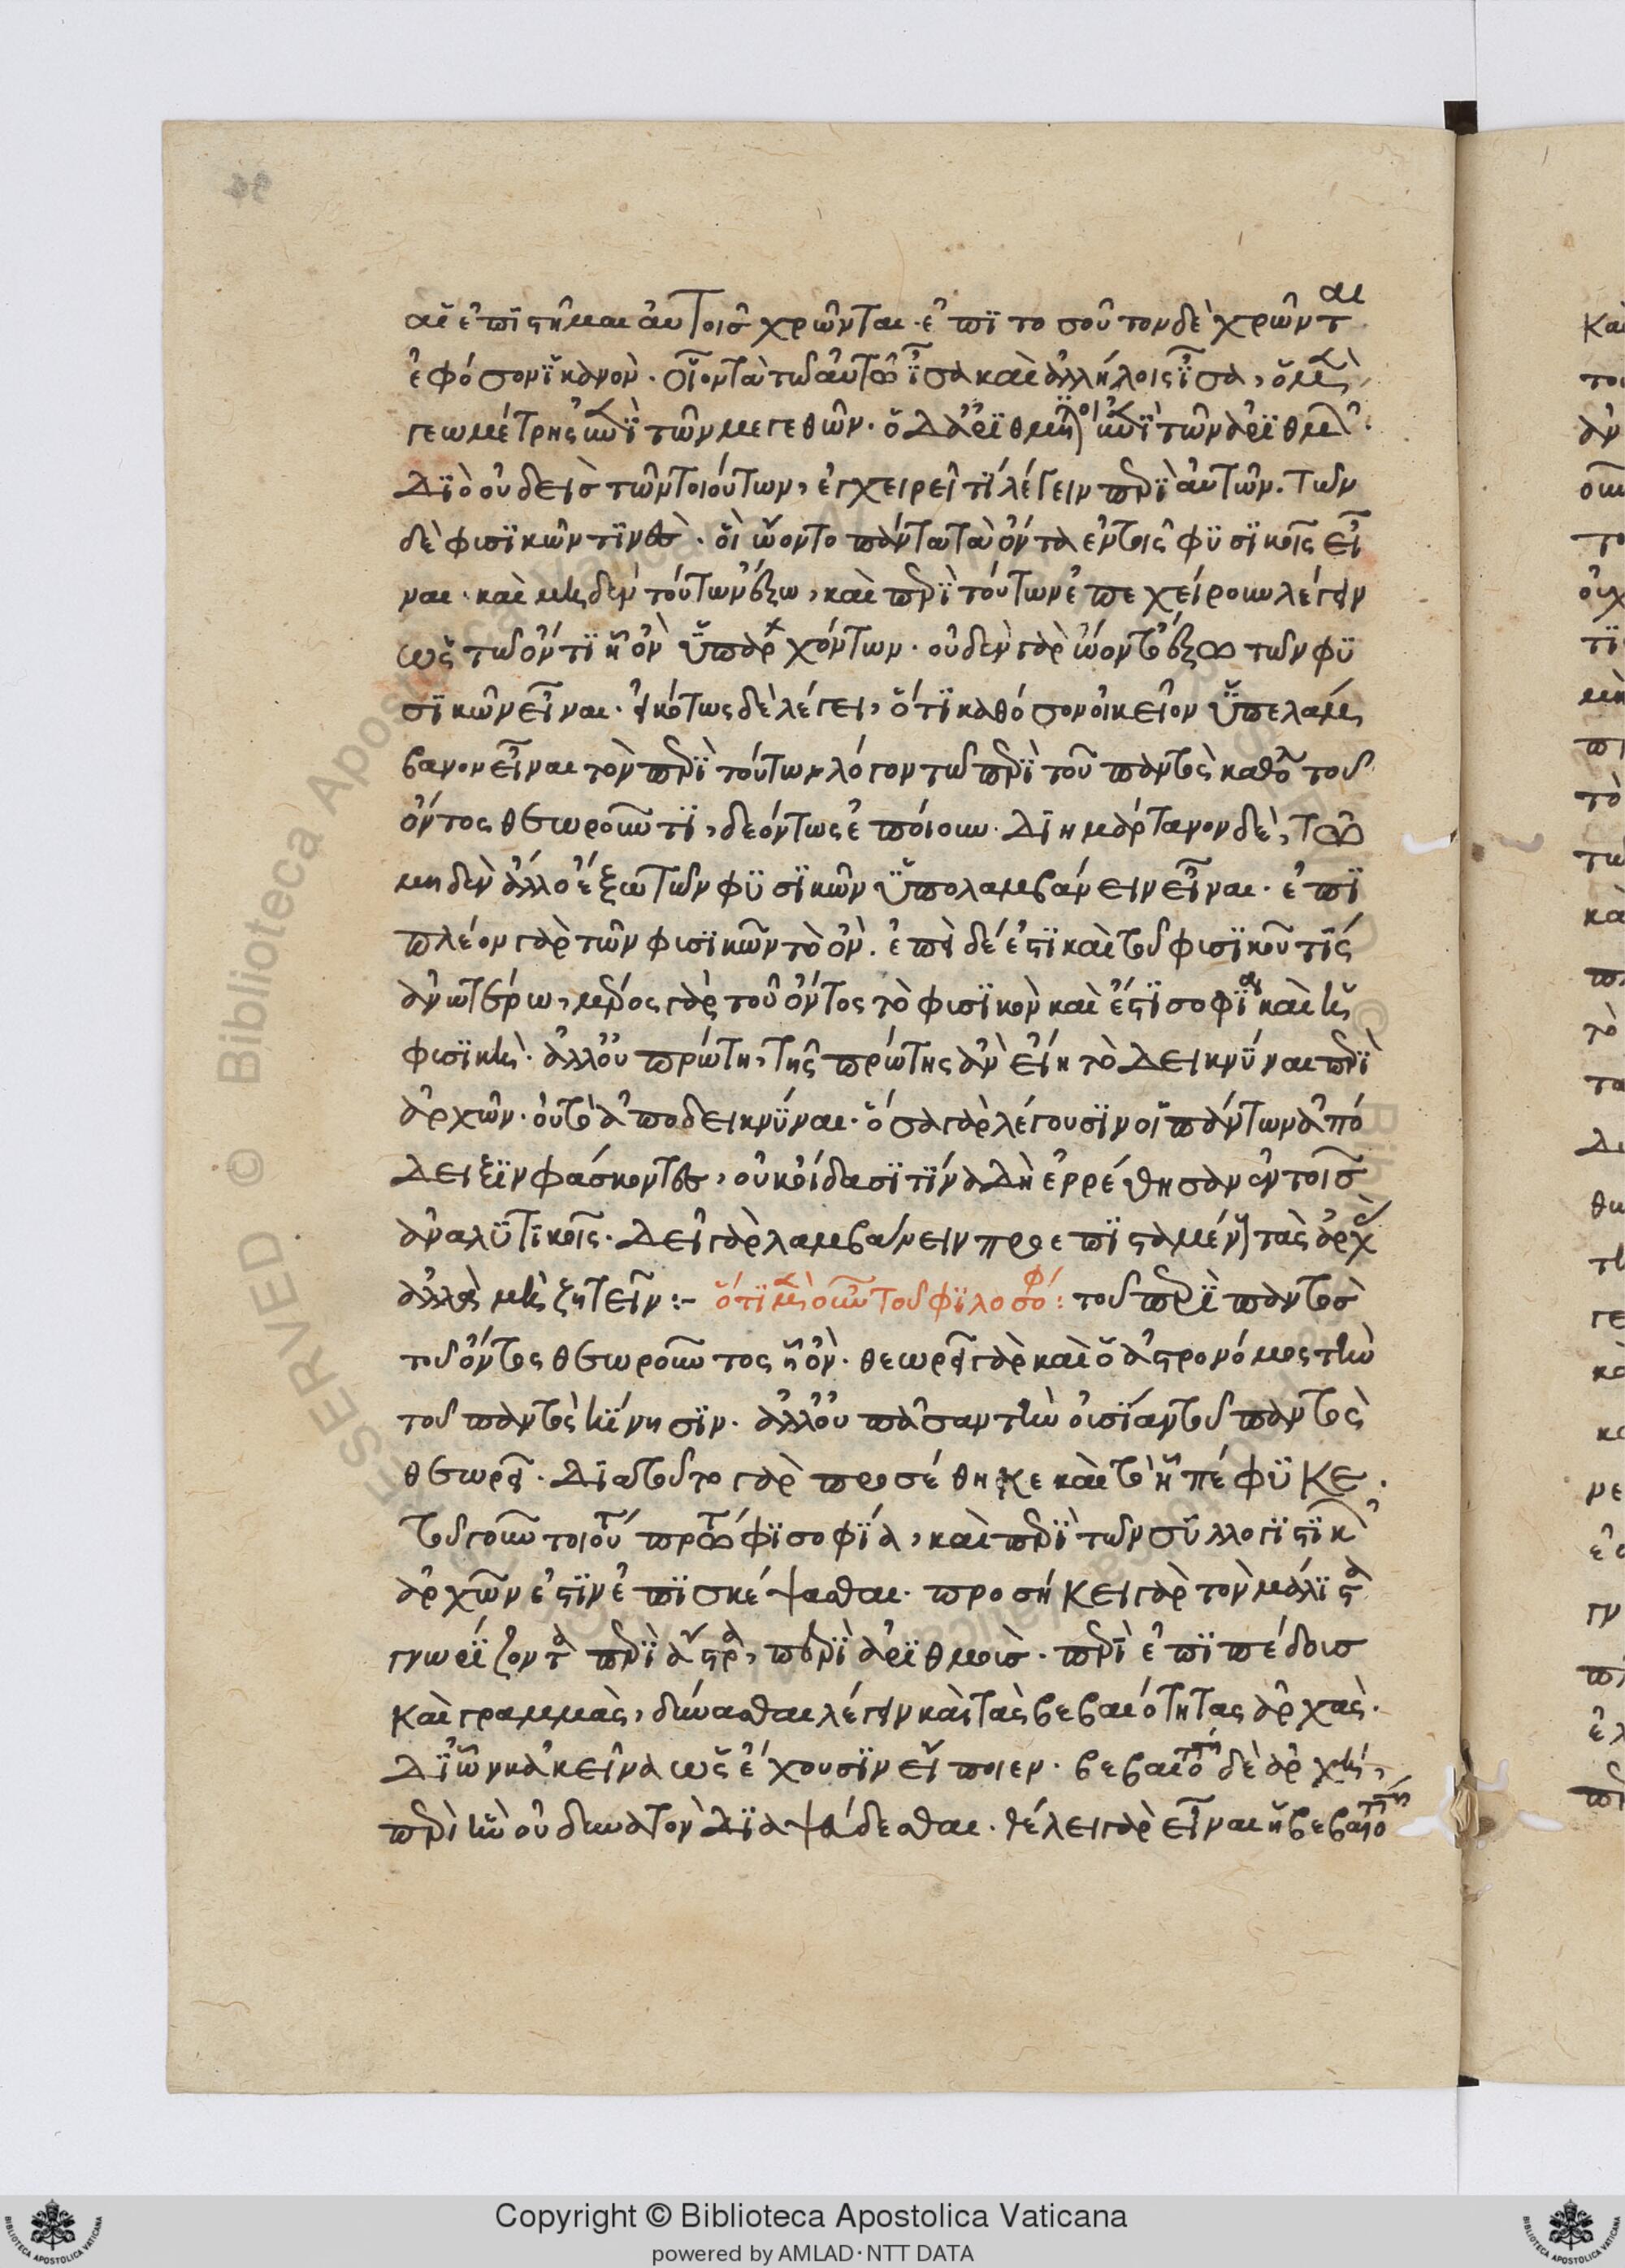 αἱ ἐπιστῆμαι αὐτοῖς χρῶνται· ἐπὶ τοσοῦτον δὲ χρῶνται
ἐφόσον ἱκανὸν· οἷον τὰ τῶ αὐτῶ ἴσα καὶ ἀλλήλοις ἴσα,
γεωμέτρης ἐπὶ τῶν μεγεθῶν· ὁ δ' ἀριθμητικὸς ἐπὶ τῶν ἀριθμῶν·
Διὸ οὐδεὶς τῶν τοιούτων, ἐγχειρεῖ τί λέγειν περὶ αὐτῶν. τῶν
δὲ φισικῶν τινὲς· οἳ ὤοντο πάντα τὰ ὄντα ἐν τοῖς φυσικοῖς εἶ
ναι· καὶ μηδὲν τούτων ἔξω, καὶ περὶ τούτων ἐπεχείρουν λέγειν
ὡς τῶ ὄντι ἧ ὂν ὑπαρχόντων· οὐδὲν γὰρ ὤοντο ἔξω τῶν φυ
σικῶν εἶναι· εἰκότως δὲ λέγει, ὅτι καθόσον οἰκεῖον ὑπελάμ
βανον εἶναι τὸν περὶ τούτων λόγον τῶ περὶ τοῦ παντὸς καθὸ τοῦ
ὄντος θεωροῦντι, δεόντως ἐποίουν· Διημάρτανον δὲ, τῶ
μηδὲν ἄλλο ἔξω τῶν φυσικῶν ὑπολαμβάνειν εἶναι· ἐπὶ
πλέον γὰρ τῶν φισικῶν τὸ ὂν. ἐπεὶ δέ ἐστι καὶ τοῦ φισικοῦ τίς
ἀνωτέρω, μέρος γὰρ τοῦ ὄντος τὸ φισικὸν καὶ ἔστι σοφία καὶ ἡ
φισικὴ· ἀλλ' οὐ πρώτη, τῆς πρώτης ἂν εἴη τὸ Δεικνύναι περὶ
ἀρχῶν· οὐ τὸ ἀποδεικνύναι· ὅσα γὰρ λέγουσιν οἱ πάντων ἀπό
Δειξιν φάσκοντες, οὐκ οἴδασι τίνα Δὴ ἐρρέθησαν ἐν τοῖς
ἀναλυτικοῖς· Δεῖ γὰρ λαμβάνειν προεπισταμένους τὰς ἀρχὰς
ἀλλὰ μὴ ζητεῖν :- ὅτι μὲν οὖν τοῦ φιλοσόφου : τοῦ περὶ παντὸς
τοῦ ὄντος θεωροῦντος ἧ ὂν· θεωρεῖ γὰρ καὶ ὁ ἀστρονόμος τὴν
τοῦ παντὸς κίνησιν· ἀλλ' οὐ πᾶσαν τὴν οὐσίαν τοῦ παντὸς
θεωρεῖ· Διὰ τοῦτο γὰρ προσέθηκε καὶ τὸ ἧ πέφυκε·
τοῦ γοῦν τοιούτου φισοφία, καὶ περὶ τῶν συλλογιστικῶν
ἀρχῶν ἐστὶν ἐπισκέψασθαι· προσήκει γὰρ τὸν μάλιστα
γνωρίζοντα περὶ ἄστρα, περὶ ἀριθμοὺς· περὶ ἐπιπέδοις
καὶ γραμμὰς, δύνασθαι λέγειν καὶ τὰς βεβαιότητας ἀρχὰς·
Δι' ὧν κἀκεῖνα ὡς ἔχουσιν εἴποιεν· βεβαιοτάτη δὲ ἀρχὴ,
περὶ ἣν οὐ δυνατὸν Διαψεύδεσθαι· θέλει γὰρ εἶναι ἡ βεβαιοτάτη